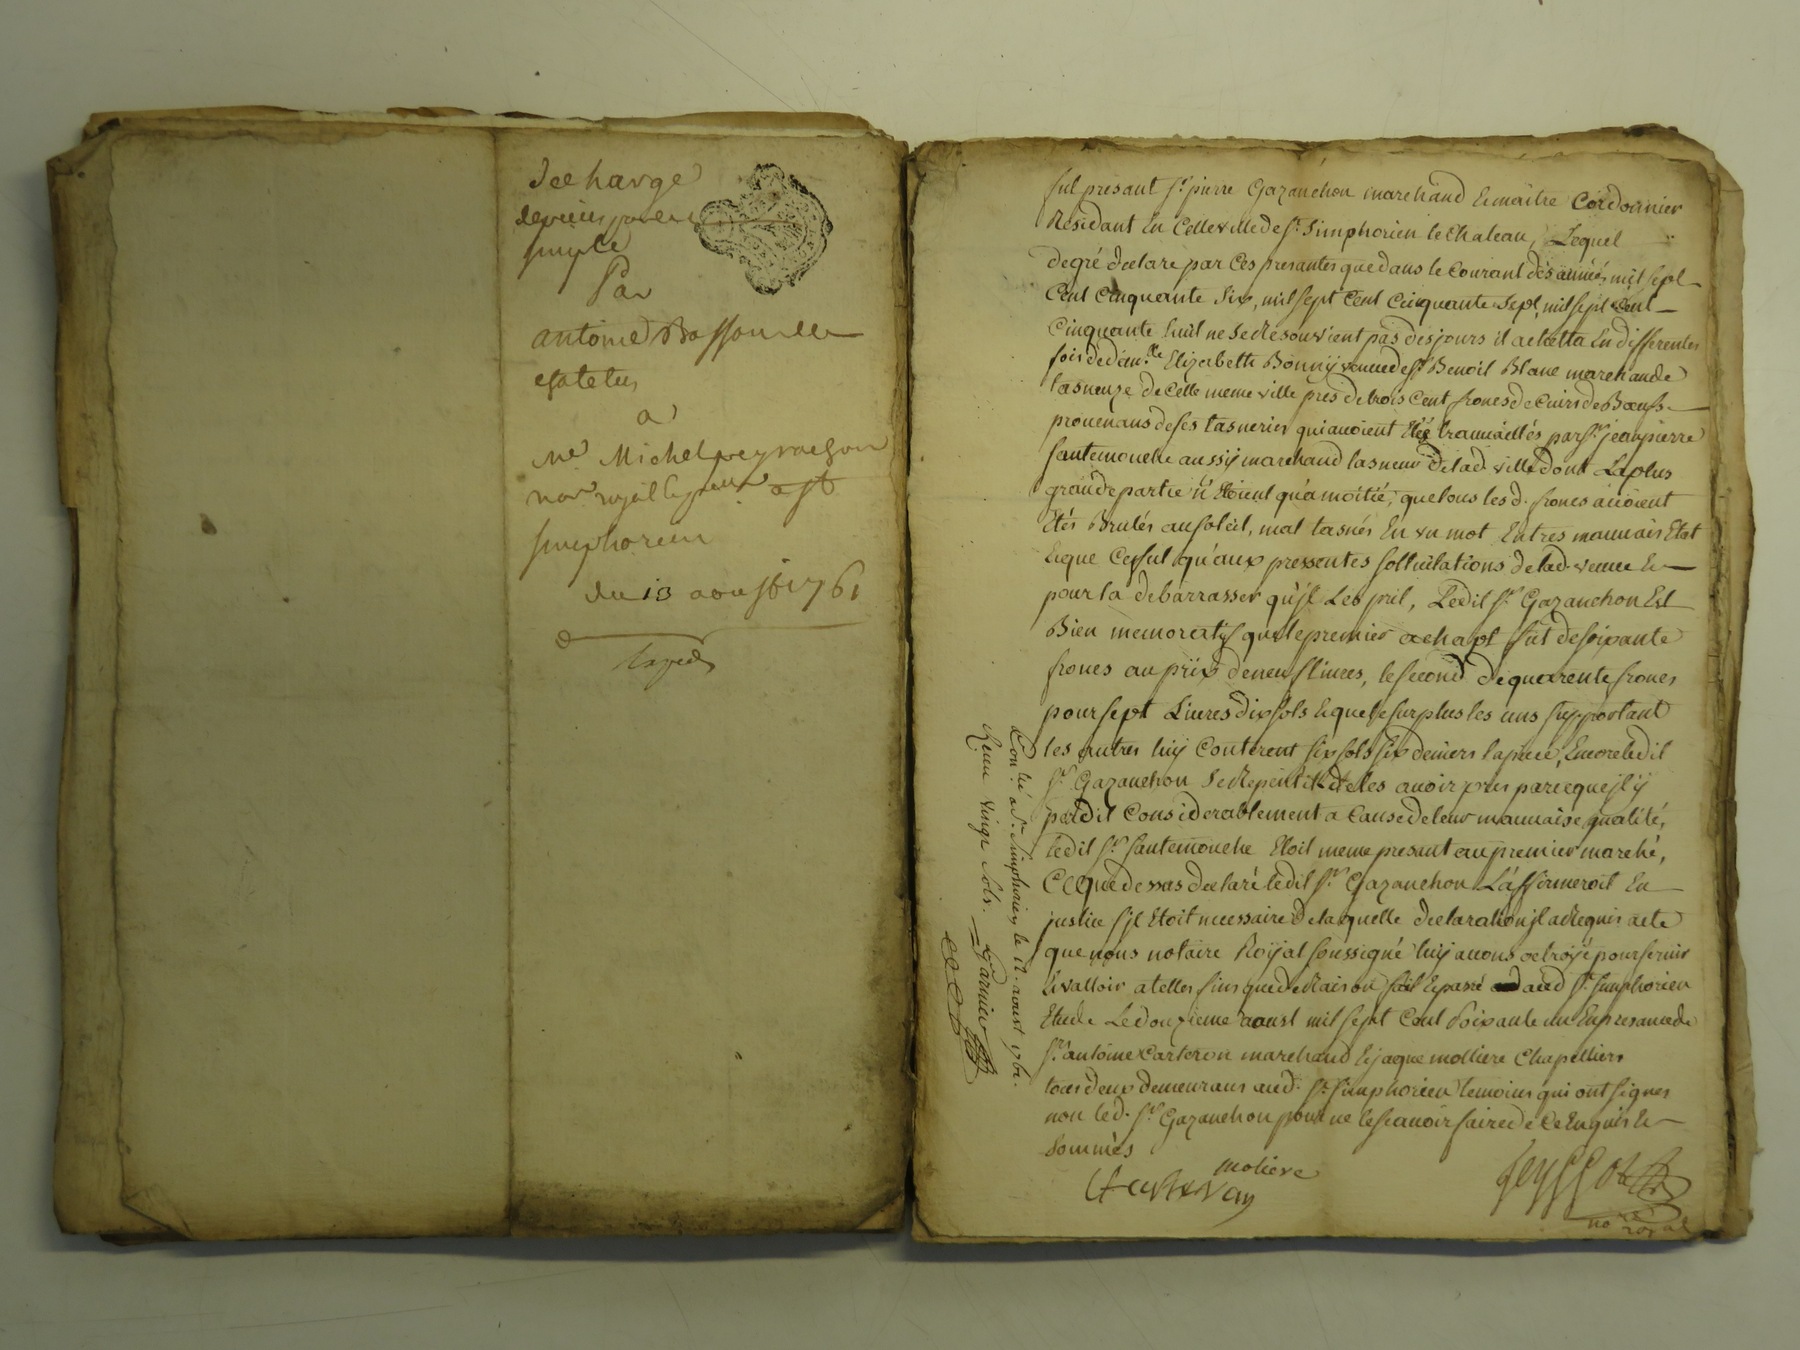 decharge
simple
Par
antoine Bassouillee
a
Me Michel peyrachon
simphorien
du 13 aoust 1761
fut presant Sr. pierre Gazanchon marchand Et maitre Cordonnier
Residant En Cette ville de St. Simphorien le Chateau, Lequel
de gré declare par Ces presantes que dans le Courant des années mil sept
Cent Cinquante Six, mil sept Cent Cinquante Sept, mil sept Cent
Cinquante huit ne se Resouvient pas des jours il achetta En differentes
fois de dem.lle Elizabeth Bonnij veuve de Sr. Benoit Blanc marchande
tasneuze de Cette meme ville pres de trois Cent frones de Cuirs de Bœufs
provenans de ses tasneries qui avoient Eté travaillés par Sr. jean pierre
Santemouche aussij marchand tasneur de lad. ville dont La plus
grande partie n'Etoient qu'a moitié, que tous les d. frones avoient
Etés Brulés au soleil, mal tasnés En un mot En tres mauvais Etat
Et que Ce fut qu'aux pressentes sollicitations de lad. veuve Et
pour la debarrasser qu'jl Les prit, Ledit Sr. Gazanchon Est
Bien memoratif que le premier achapt fut de soixante
frones au prix de neuf livres, le second de quarente frones
pour sept Livres dix sols Et que le surplus les uns supportant
les autres luij Conterent six sols six deniers la piece, Encore ledit
Sr. Gazanchon se Repentit de les avoir pris parceque jl ij
perdit Considerablement a Cause de leur mauvaise qualité,
ledit Sr. Santemouche Etoit meme presant au premier marché,
Ce que dessus declaré ledit Sr. Gazanchon L'affirmeroit En
justice s'jl Etoit necessaire de laquelle declaration jl a Requis acte
que nous notaire Roijal soussigné luij avons octroijé pour servir
Et valloir a telles fins que de Raison fait Et passé aud St. Simphorien
Etude Le douzieme aoust mil sept Cent Soixante un En presance de
Sr. antoine Carteron marchand Et jaque molliere Chapelliers
tous deux demeurans aud. St. Simphorien temoins qui ont signes
non led. Sr. Gazanchon pour ne le scavoir faire de Ce Enquis Et
Sommés
moliere
Carteron
no. royal
Con.lé a St. Simphorien le 12. aoust 1761.
Reçu vingt sols. Garnier